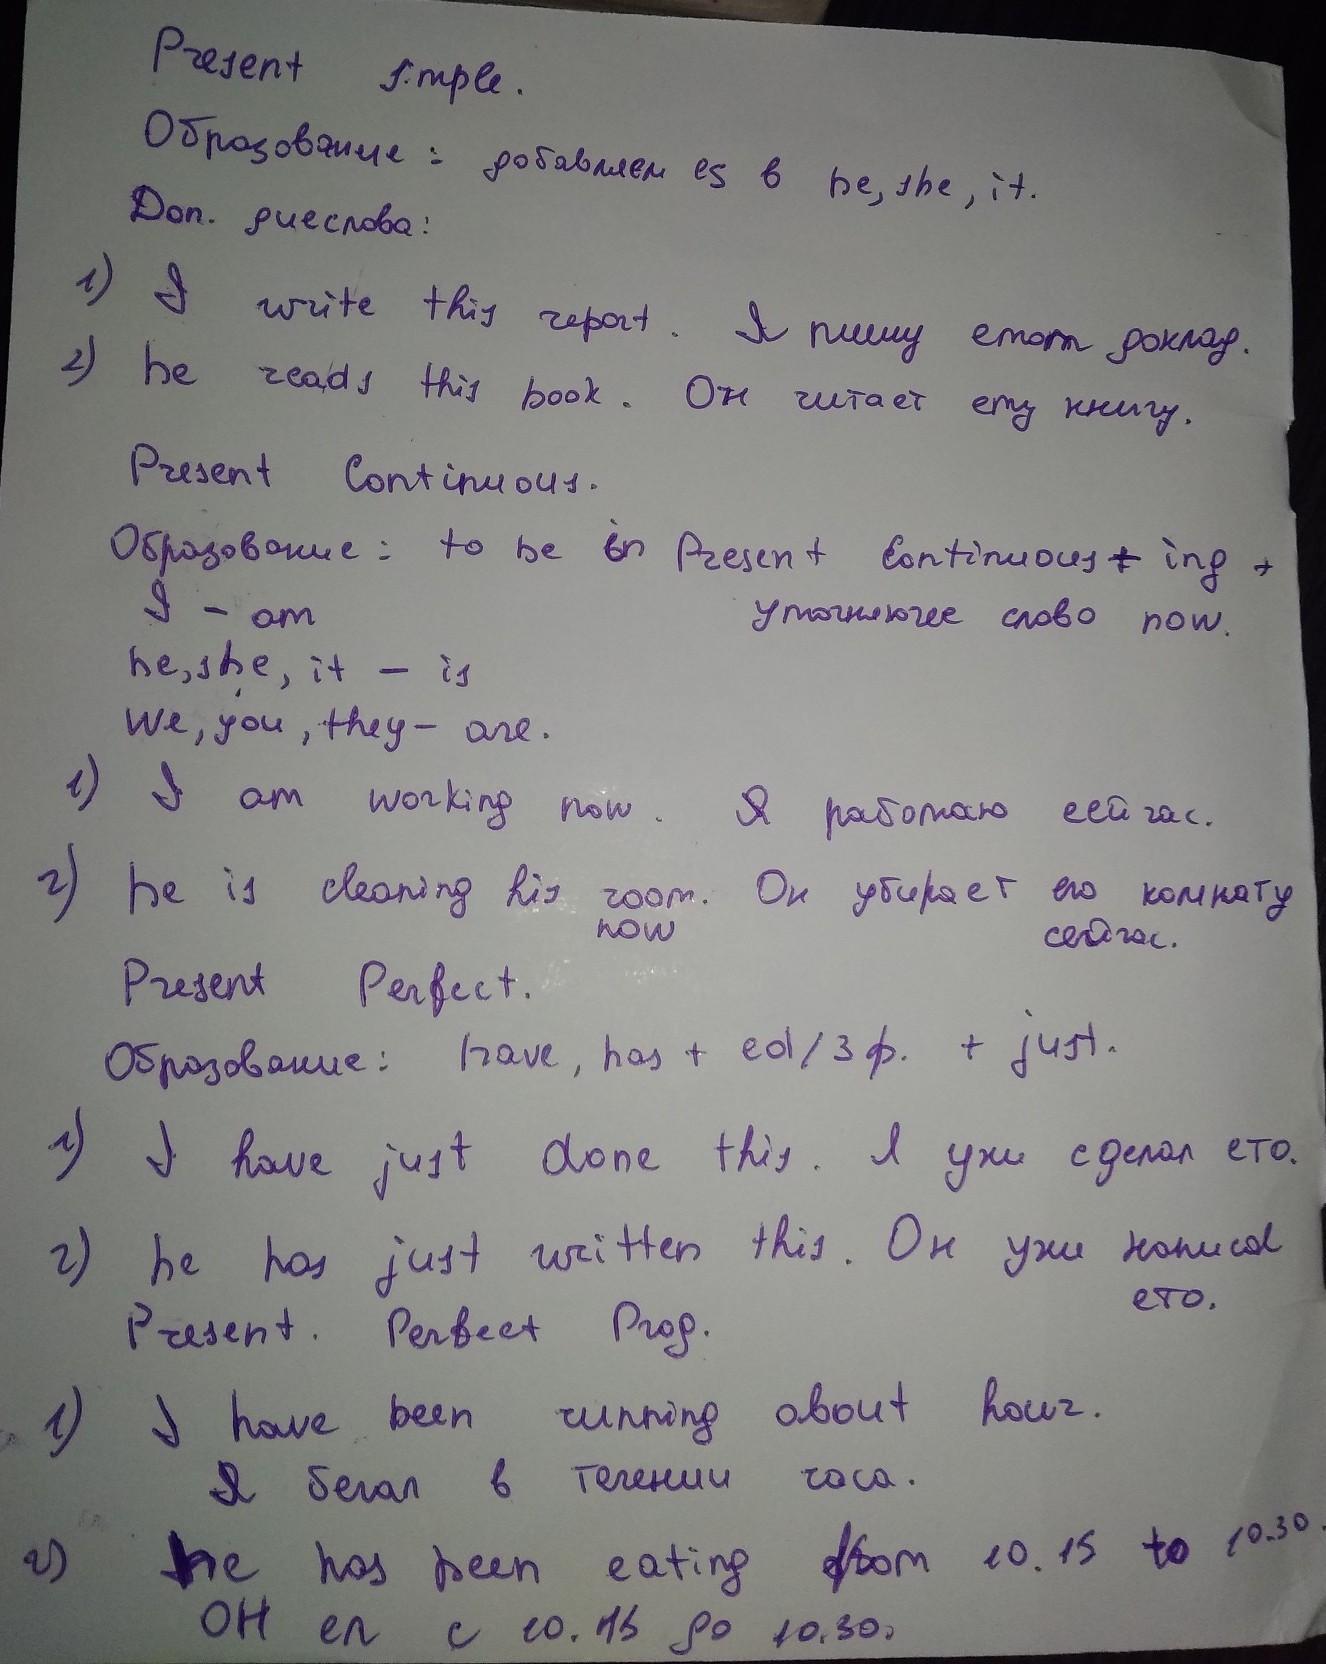 Present simple.
Образование: добавляем es в he, she, it.
Доп. глеслова:
1) I write this report. Я пишу етот доклад.
2) he reads this book. Он читает ету книгу.
Present Continuous.
Образование: to be in Present Continuous + ing +
I - am уточняющее слово now.
he, she, it - is
We, you, they - are.
1) I am working now. Я работаю сейчас.
2) he is cleaning his room. Он убирает его комнату
now сейчас.
Present Perfect.
Образование: have, has + ed/3 ф. + just.
1) I have just done this. Я ужи сделал ето.
2) he has just written this. Он ужи написал
ето.
Present. Perfect Prog.
1) I have been running about hour.
Я бегал в течении часа.
2) he has been eating from 10.15 to 10.30.
Он ел с 10.15 до 10.30.